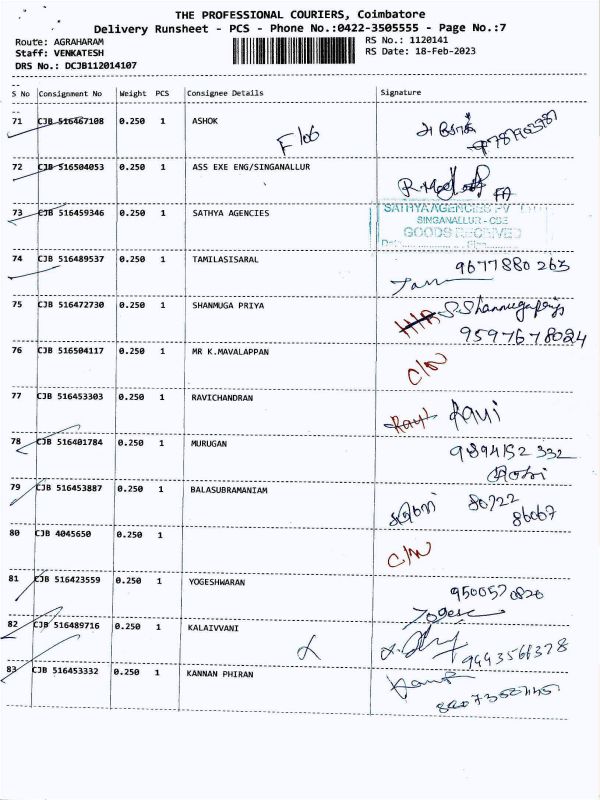 THE PROFESSIONAL COURIERS, Coimbatore
Delivery Runsheet - PCS - Phone No.:0422-3505555 - Page No.:7
Route: AGRAHARAM RS No.: 1120141
Staff: VENKATESH RS Date: 18-Feb-2023
DRS No.: DCJB112014107
S No Consignment No Weight PCS Consignee Details Signature
71 CJB 516467108 0.250 1 ASHOK
72 CJB 516504053 0.250 1 ASS EXE ENG/SINGANALLUR
73 CJB 516459346 0.250 1 SATHYA AGENCIES
SATHYA AGENCIES
SINGANALLUR - CBE
GOODS RECEIVED
74 CJB 516489537 0.250 1 TAMILASISARAL 9677880263
75 CJB 516472730 0.250 1 SHANMUGA PRIYA S. Shanmugapriya
9597678024
76 CJB 516504117 0.250 1 MR K.MAVALAPPAN C/N
77 CJB 516453303 0.250 1 RAVICHANDRAN Ravi
78 CJB 516401784 0.250 1 MURUGAN 9894152332
79 CJB 516453887 0.250 1 BALASUBRAMANIAM 80722
86067
80 CJB 4045650 0.250 1 C/N
81 CJB 516423559 0.250 1 YOGESHWARAN 9500570820
82 CJB 516489716 0.250 1 KALAIVVANI 9443566378
83 CJB 516453332 0.250 1 KANNAN PHIRAN